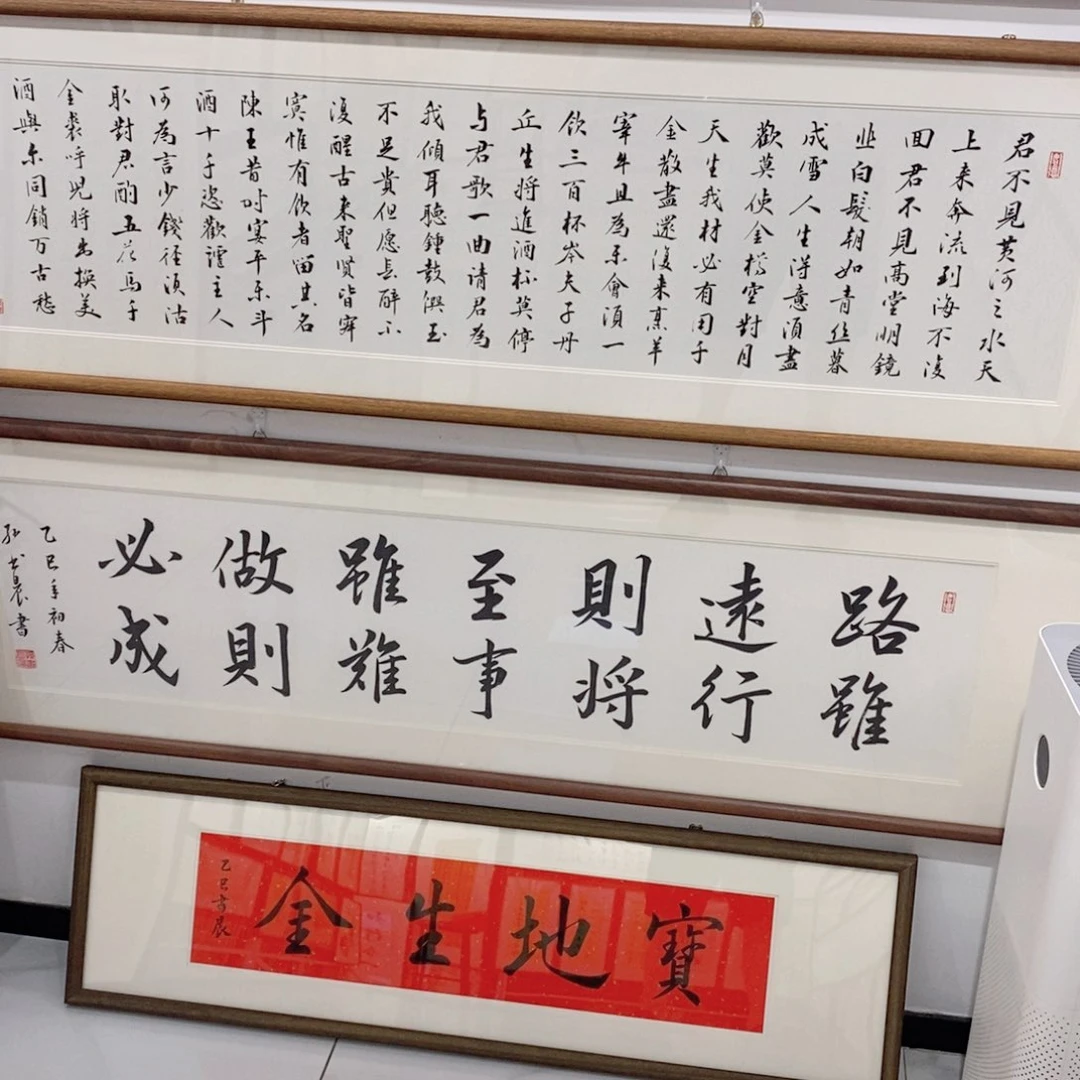 君不見黄河之水天
上来奔流到海不復
回君不見高堂明鏡
悲白髮朝如青丝暮
成雪人生得意須盡
歡莫使金樽空對月
天生我材必有用千
金散盡還復来烹羊
宰牛且為乐會須一
饮三百杯岑夫子丹
丘生将進酒杯莫停
与君歌一曲请君為
我倾耳聽鍾鼓饌玉
不足貴但愿長醉不
復醒古来聖贤皆寂
寞惟有饮者留其名
陳王昔时宴平乐斗
酒十千恣歡謔主人
何為言少錢径須沽
取對君酌五花馬千
金裘呼兒将出換美
酒與尔同銷万古愁
路雖
遠行
則将
至事
雖難
做則
必成
乙巳年初春
晨書
寶地生金
乙巳